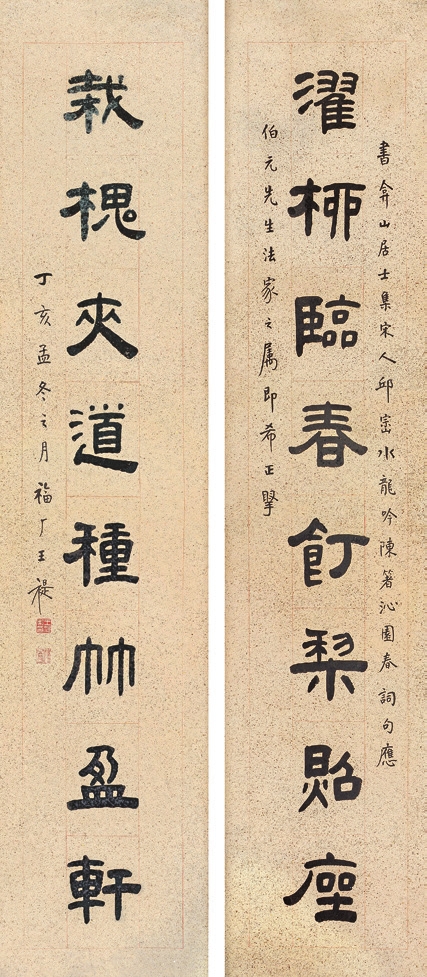 書弇山居士集宋人邱崈水龍吟陳箸沁園春詞句應
濯桺臨春飣棃照座
伯元先生法家之属即希正掔
栽槐夾道種竹盈軒
丁亥孟冬之月福厂王禔